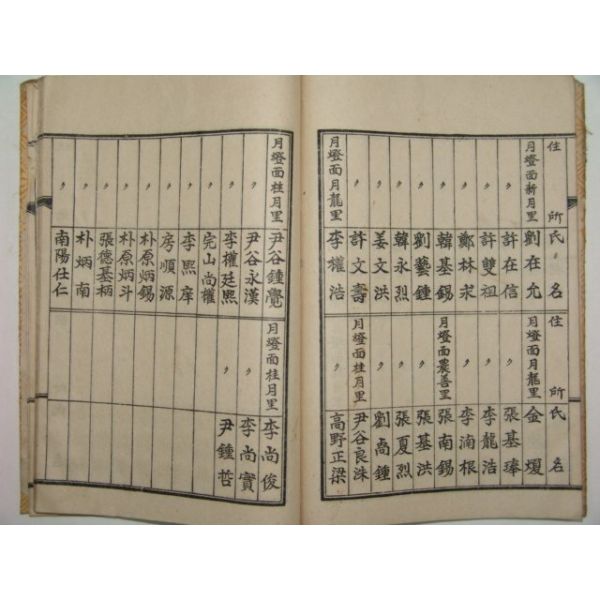 住所 氏名
月燈面新月里 劉在允
〃 許在信
〃 許雙祖
〃 鄭林求
〃 韓基錫
〃 劉藝鍾
〃 韓永烈
〃 姜文洪
〃 許文壽
月燈面月龍里 李權浩
住所 氏名
月燈面月龍里 金
〃 張基琫
〃 李龍浩
〃 李湳根
月燈面農善里 張南錫
〃 張基洪
〃 張夏烈
〃 劉卨鍾
月燈面桂月里 尹谷良洙
〃 高野正梁
月燈面桂月里 尹谷鍾覺
〃 尹谷永漢
〃 李權廷熙
〃 完山尚權
〃 李熙庠
〃 房順源
〃 朴原炳錫
〃 朴原炳斗
〃 張德基柄
〃 朴炳南
〃 南陽仕仁
月燈面桂月里 李尚俊
〃 李尚實
〃 尹鍾哲